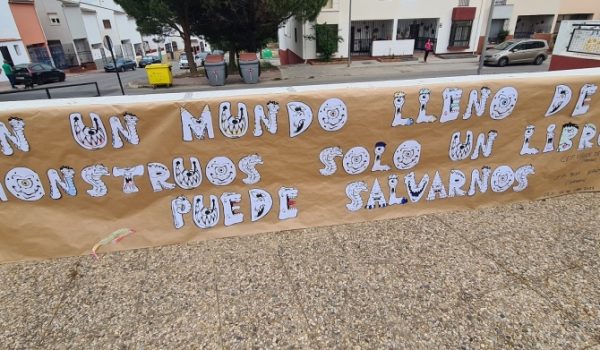 N UN MUNDO LLENO DE
MONSTRUOS SOLO UN LIBRO
PUEDE SALVARNOS